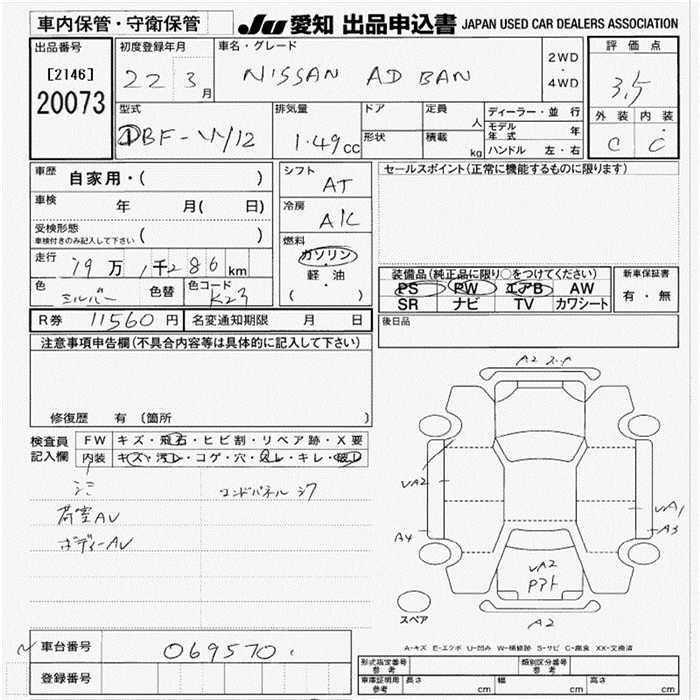 車内保管・守衛保管
JU 愛知 出品申込書 JAPAN USED CAR DEALERS ASSOCIATION
出品番号
[2146]
20073
初度登録年月
22 3月
車名・グレード
NISSAN AD BAN
2WD
・
4WD
評価点
3.5
外装 内装
C C
型式
DBF-VY12
排気量
1.49cc
ドア
形状
定員
人
積載
kg
ディーラー・並行
モデル年式 年
ハンドル 左・右
車歴
自家用・( )
車検
年 月( 日)
受検形態
車検付きのみ記入して下さい ( )
走行
19万 1千286km
色
シルバー
色替
色コード
K23
シフト
AT
冷房
A/C
燃料
ガソリン
・
軽・油
・
( )
セールスポイント(正常に機能するものに限ります)
装備品(純正品に限り○をつけてください)
PS PW エアB AW
SR ナビ TV カワシート
新車保証書
有・無
R券 11560円
名変通知期限 月 日
後日品
注意事項申告欄(不具合内容等は具体的に記入して下さい)
修復歴 有(箇所 )
検査員
記入欄
FW キズ・飛石・ヒビ割・リペア跡・X要
内装 キズ・汚レ・コゲ・穴・スレ・キレ・破レ
コンドパネル
荷室AU
ボディーAU
A2
UA2
A4
UA1
A3
UA2
Pアト
A2
スペア
A-キズ E-エクボ U-凹み W-補修跡 S-サビ C-腐食 XX-交換済
車台番号
069570
登録番号
型式指定番号
参考
類別区分番号
参考
車庫証明用
参考
長さ cm
幅 cm
高さ cm